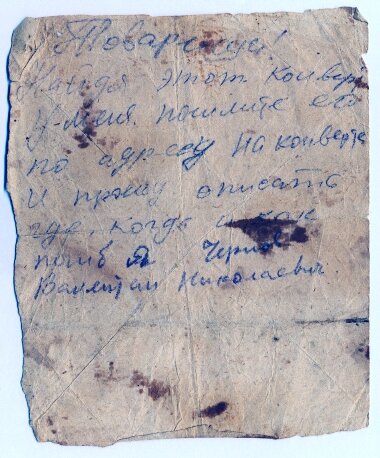 Товарищи!
Найдя этот конверт
у меня пошлите его
по адресу на конверте
и прошу описать
где, когда и как
погиб я Чернов
Валентин Николаевич.